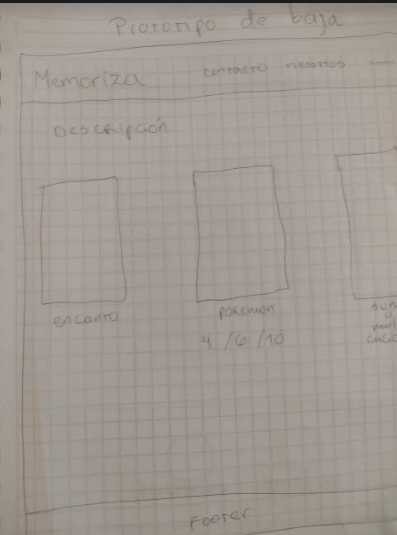 Prototipo de baja
Memoriza contacto nosotros
Descripción
encanto
pokemon
4 / 6 / 10
Footer